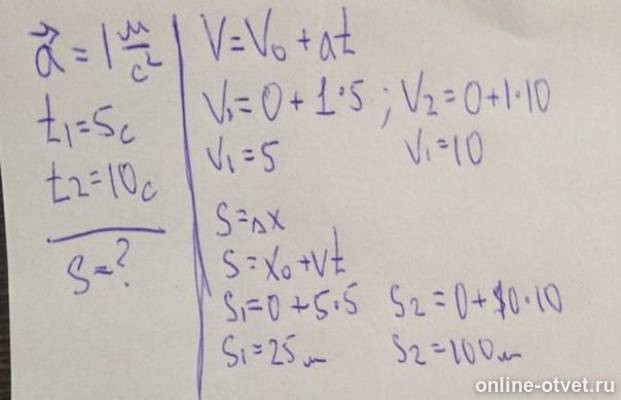 a⃗ = 1 м/с²
t₁ = 5с
t₂ = 10с
S = ?
V = V₀ + at
V₁ = 0 + 1·5 ; V₂ = 0 + 1·10
V₁ = 5 V₁ = 10
S = Δx
S = x₀ + Vt
S₁ = 0 + 5·5 S₂ = 0 + 10·10
S₁ = 25м S₂ = 100м
online-otvet.ru